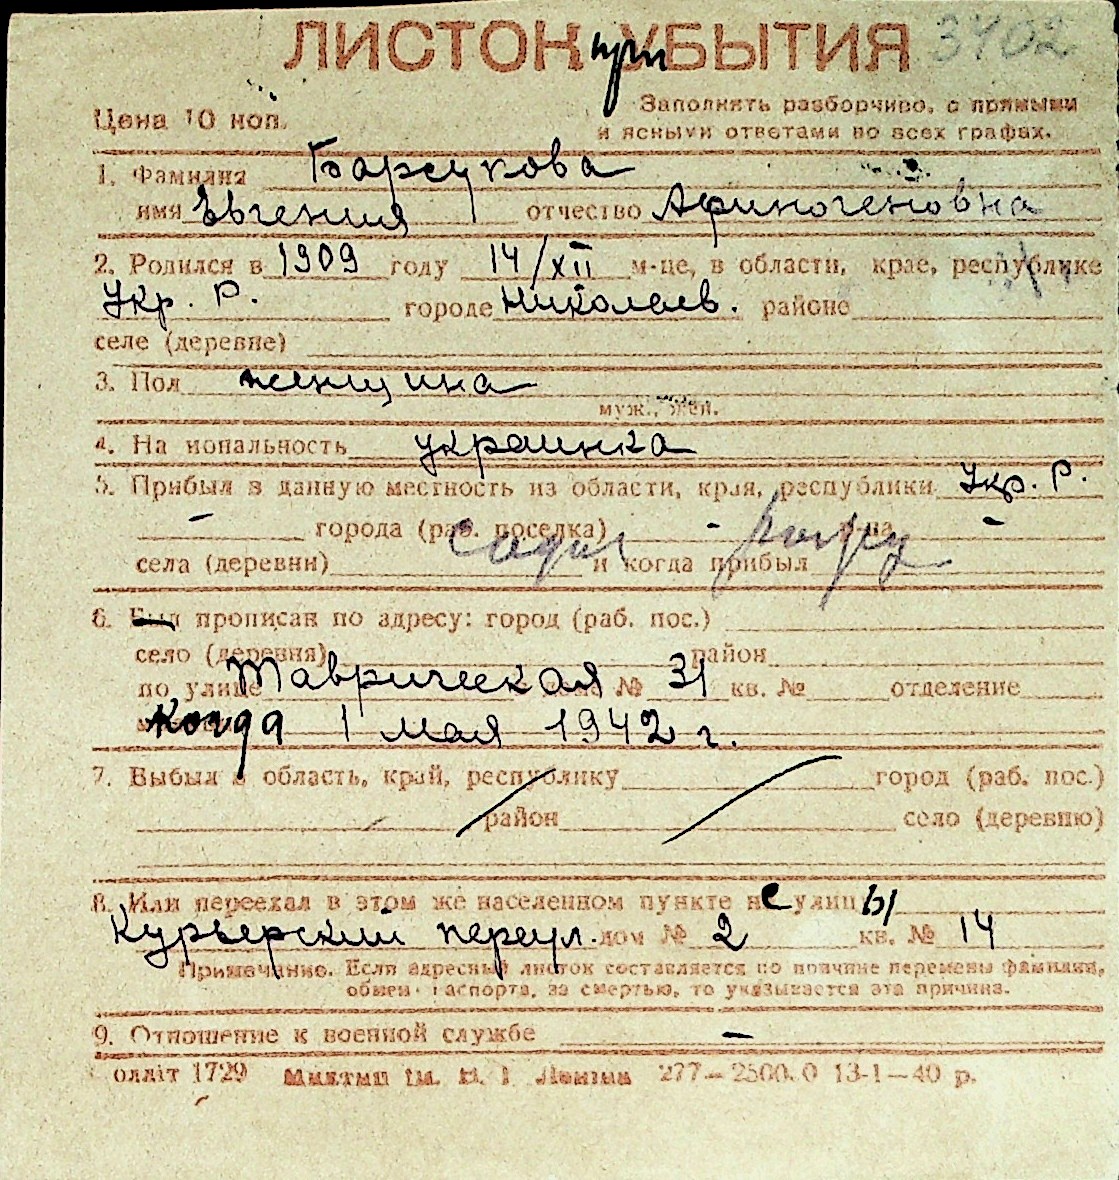 ЛИСТОК при УБЫТИЯ 3402
Цена 10 коп.
Заполнять разборчиво, с прямыми
и ясными ответами во всех графах.
1. Фамилия Барсукова
имя Евгения отчество Афиногеновна
2. Родился в 1909 году 14/XII м-це, в области, крае, республике
Укр. Р. городе Николаев. районе
селе (деревне)
3. Пол женщина
муж., жен.
4. Национальность украинка
5. Прибыл в данную местность из области, края, республики Укр. Р.
- города (раб. поселка) - р-на -
села (деревни) и когда прибыл
6. Был прописан по адресу: город (раб. пос.)
село (деревня) район
по улице Таврическая № 31 кв. № отделение
когда 1 мая 1942 г.
7. Выбыл в область, край, республику город (раб. пос.)
район село (деревню)
8. Или переехал в этом же населенном пункте не улицы
Курьерский переул. дом № 2 кв. № 14
Примечание. Если адресный листок составляется по причине перемены фамилии,
обмен паспорта, за смертью, то указывается эта причина.
9. Отношение к военной службе -
олліт 1729 277-2500.0 13-1-40 р.